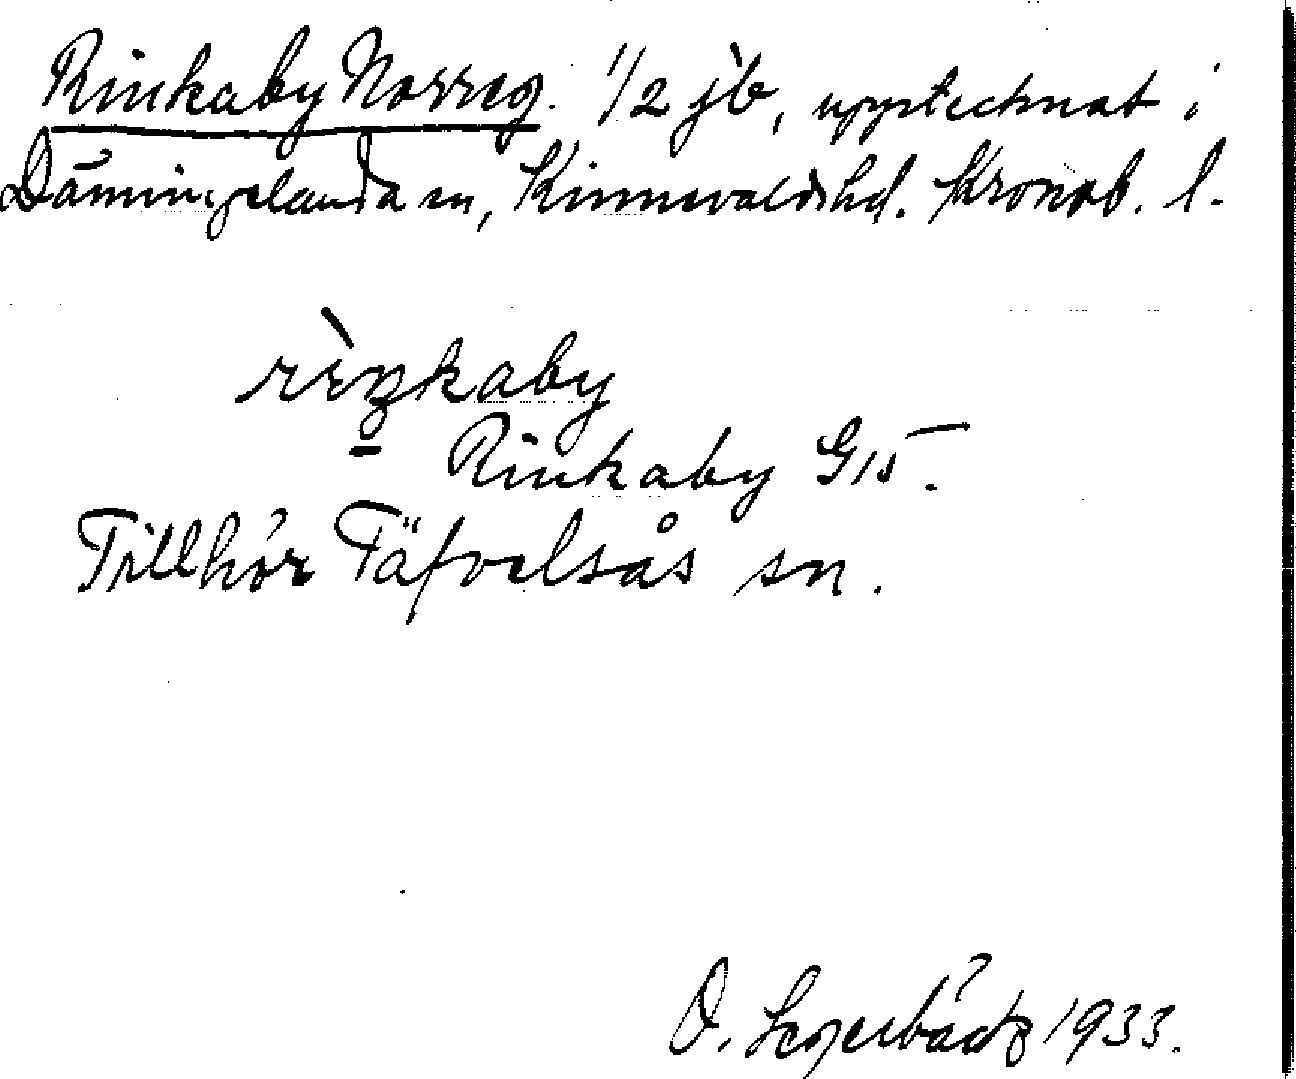 Rinkaby Norreg. 1/2 jb, upptecknat i
Dänningelanda sn, Kinnevaldshd. Kronob. l.
rìŋkaby
Rinkaby G15.
Tillhör Täfvelsås sn.
O. Segerbäck 1933.